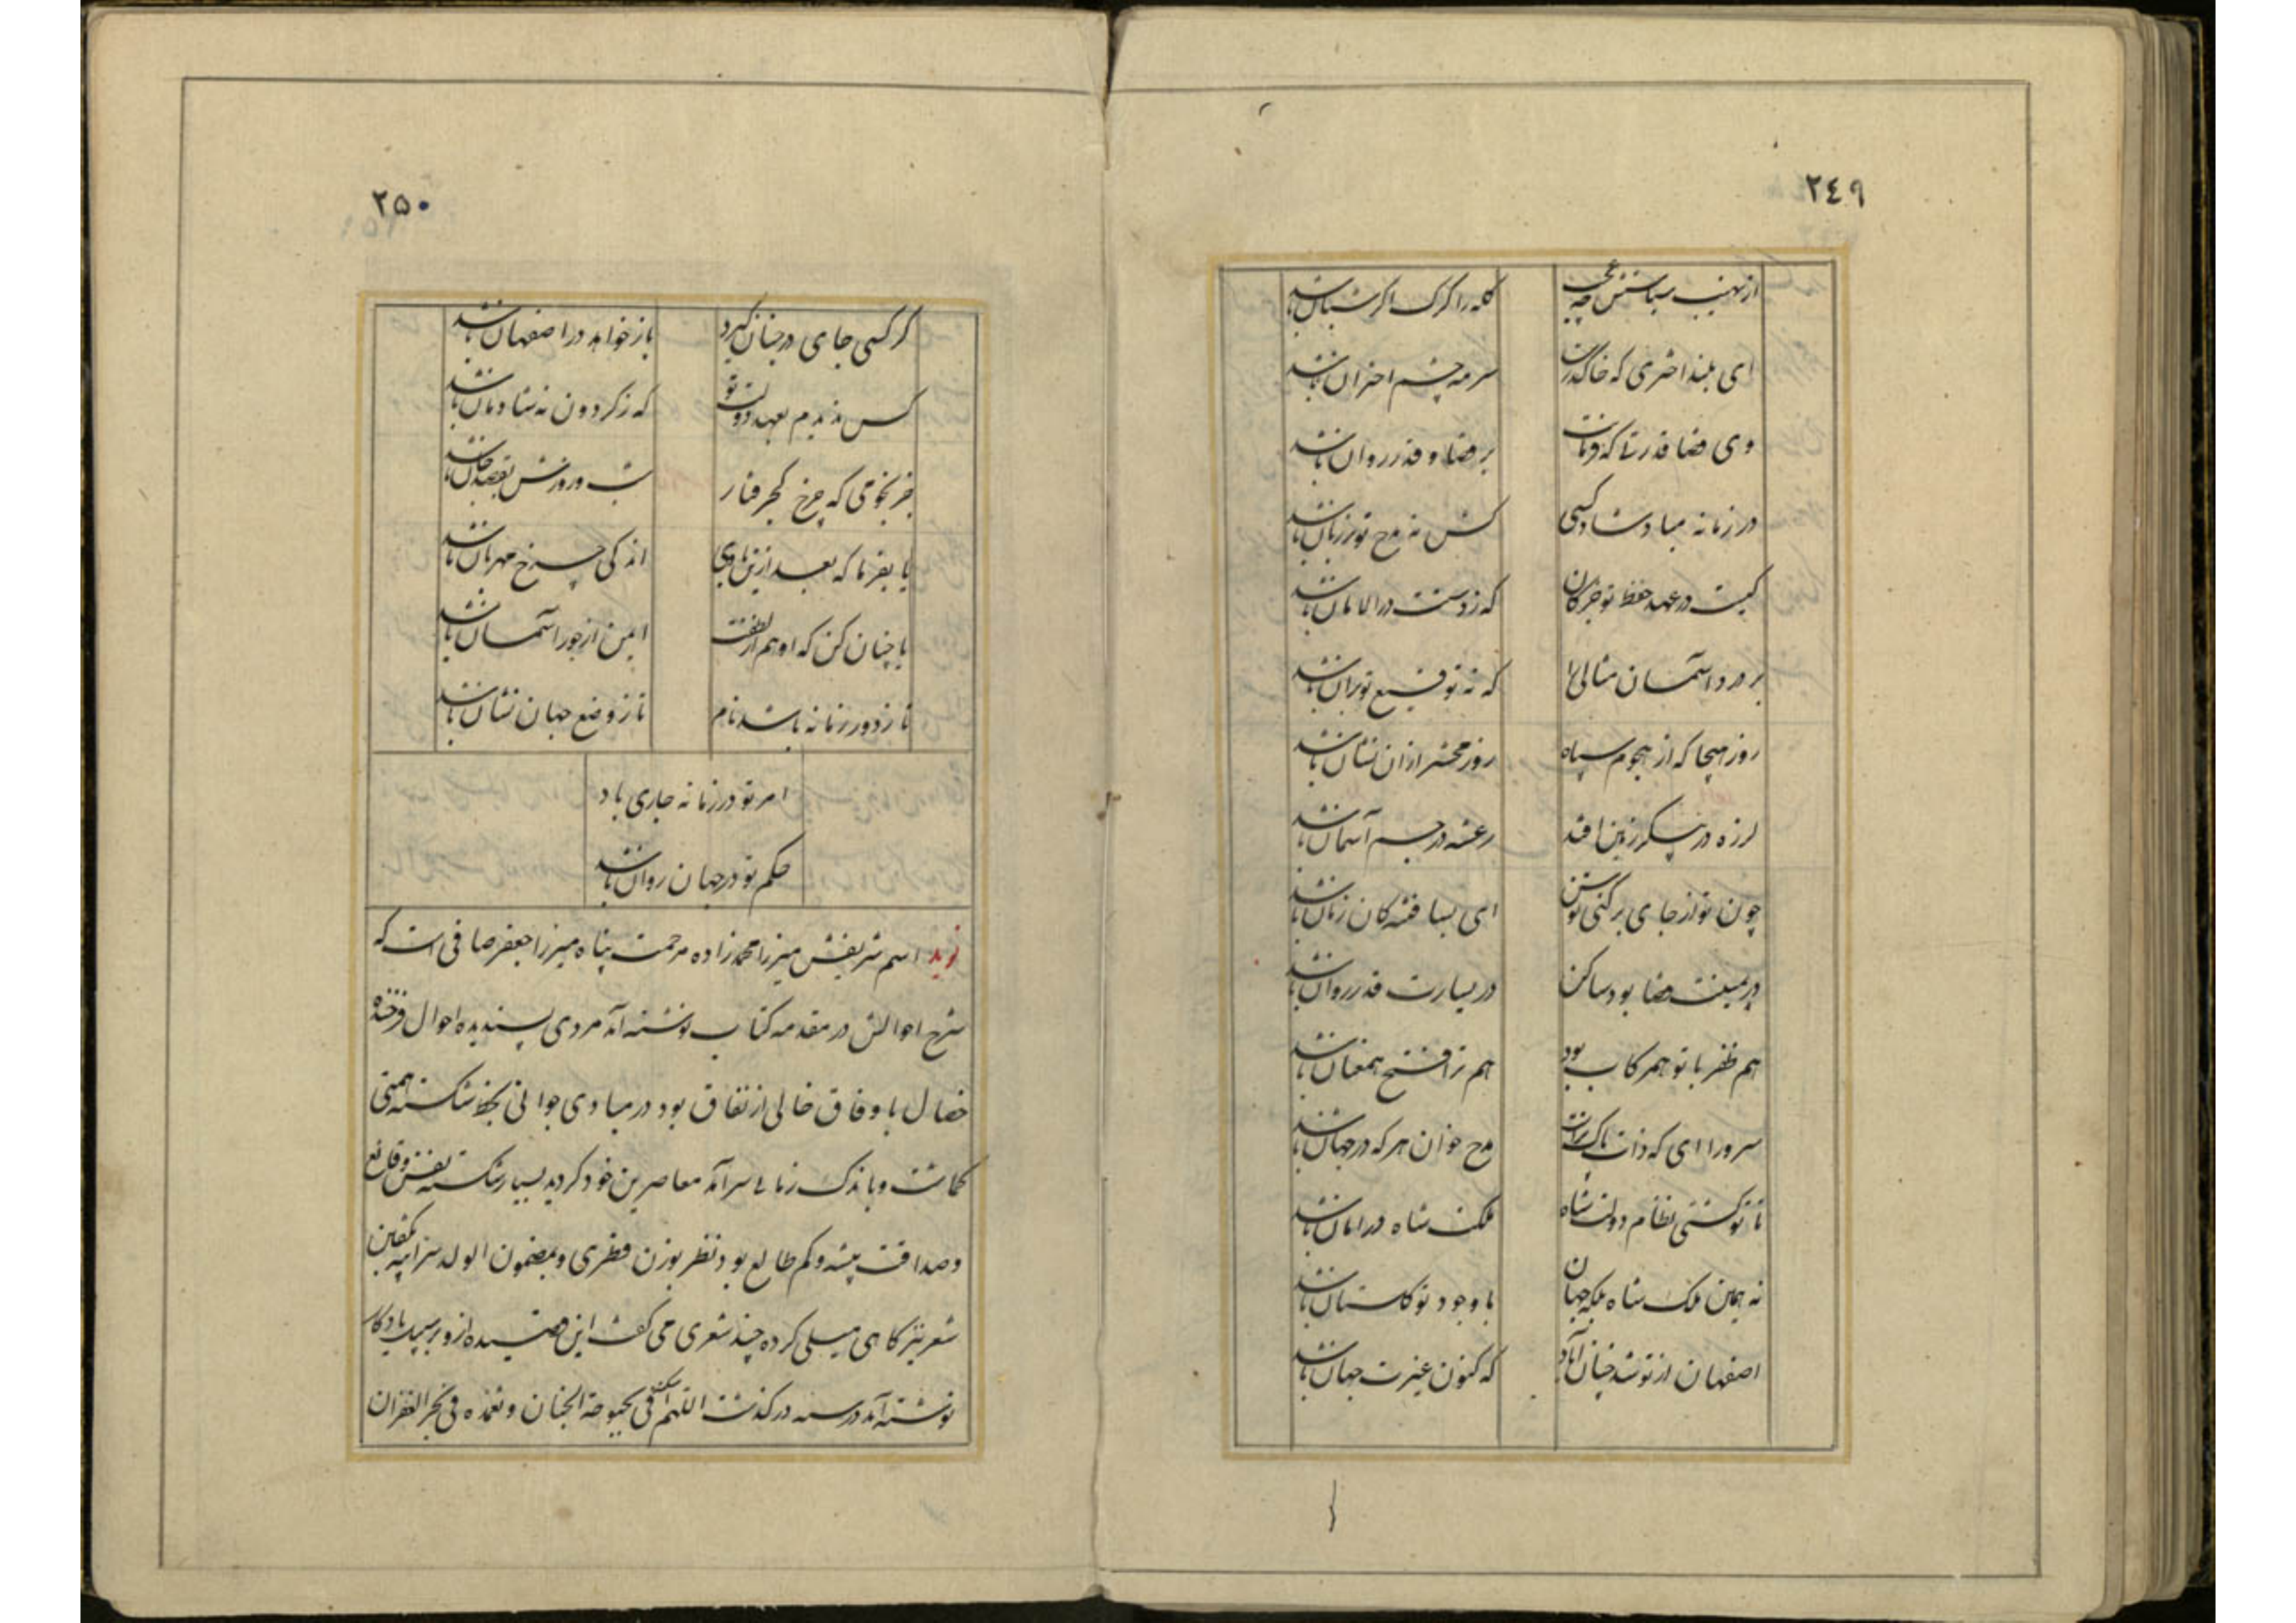 ٢٤٩
از نهیب سیاستش چه عجب
گله را گرگ اگر شبان باشد
ای بلند اختری که خاک درت
سرمه چشم اختران باشد
وی قضا قدرتا که فرمانت
بر قضا و قدر روان باشد
در زمانه مباد شاد کسی
کش نه مدح تو بر زبان باشد
کیست در عهد حفظ تو جز کان
که ز دستت در الامان باشد
بر در آسمان مثالی را
که نه توقیع تو بران باشد
روز هیجا که از هجوم سپاه
روز محشر ازان نشان باشد
لرزه در پیکر زمین افتد
رعشه در جسم آسمان باشد
چون تو از جای برکنی توسن
ای بسا فتنه کان زمان باشد
در یمینت قضا بود ساکن
در یسارت قدر روان باشد
هم ظفر با تو همرکاب بود
هم ترا فتح همعنان باشد
سرورا ای که ذات پاک ترا
مدح خوان هر که در جهان باشد
تا تو گشتی نظام دولت شاه
ملک شاه در امان باشد
نه همین ملک شاه بلکه جهان
با وجود تو گلستان باشد
اصفهان از تو شد چنان آباد
که کنون غیرت جهان باشد
٢۵٠
گر کسی جای در جنان گیرد
باز خواهد در اصفهان باشد
کس ندیدم بعهد دولت تو
که ز گردون نه شادمان باشد
جز نجومی که چرخ کجرفتار
شب و روزش بقصد جان باشد
یا بفرما که بعد ازین با وی
اندکی چرخ مهربان باشد
یا چنان کن که او هم از لطفت
ایمن از جور آسمان باشد
تا ز دور زمانه باشد نام
تا ز وضع جهان نشان باشد
امر تو در زمانه جاری باد
حکم تو در جهان روان باشد
نوید اسم شریفش میرزا محمد زاده مرحمت پناه میرزا جعفر صافی است که
شرح احوالش در مقدمه کتاب نوشته آمد مردی پسندیده احوال فرخنده
خصال با وفاق خالی از نفاق بود در مبادی جوانی بخط شکسته همتی
گماشت و باندک زمانی سرآمد معاصرین خود گردید بسیار شکسته نفس و قانع
و صداقت پیشه و کم طالع بود نظر بوزن فطری و بمضمون الولد سر ابیه بگفتن
شعر نیز گاهی میلی کرده چند شعری می گفت این قصیده از و بر سبیل یادگار
نوشته آمد در سنه درگذشت اللهم اسکنه فی بحبوحة الجنان و تغمده فی بحر الغفران